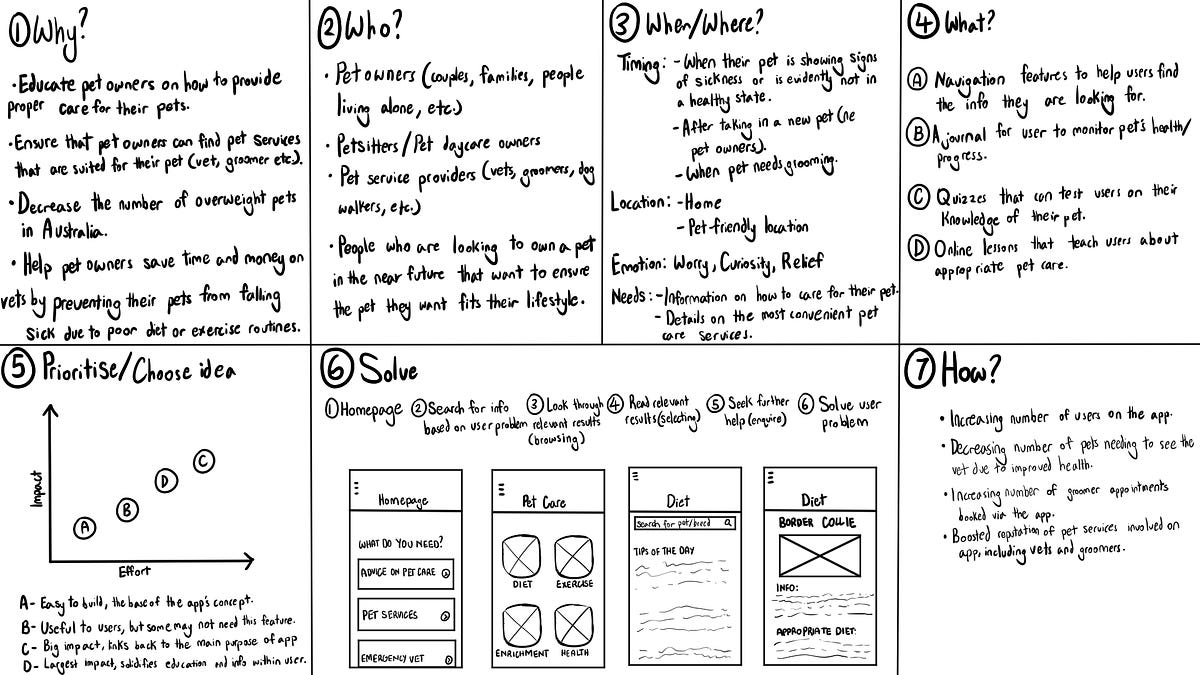 ① Why?
• Educate pet owners on how to provide
proper care for their pets.
• Ensure that pet owners can find pet services
that are suited for their pet (vet, groomer etc.).
• Decrease the number of overweight pets
in Australia.
• Help pet owners save time and money on
vets by preventing their pets from falling
sick due to poor diet or exercise routines.
② Who?
• Pet owners (couples, families, people
living alone, etc.)
• Petsitters/Pet daycare owners
• Pet service providers (vets, groomers, dog
walkers, etc.)
• People who are looking to own a pet
in the near future that want to ensure
the pet they want fits their lifestyle.
③ When/Where?
Timing: - When their pet is showing signs
of sickness or is evidently not in
a healthy state.
- After taking in a new pet (ne
pet owners).
- When pet needs grooming.
Location: - Home
- Pet-friendly location
Emotion: Worry, Curiosity, Relief
Needs: - Information on how to care for their pet.
- Details on the most convenient pet
care services.
④ What?
Ⓐ Navigation features to help users find
the info they are looking for.
Ⓑ A journal for user to monitor pet's health/
progress.
Ⓒ Quizzes that can test users on their
knowledge of their pet.
Ⓓ Online lessons that teach users about
appropriate pet care.
⑤ Prioritise/Choose idea
Impact
A
B
D
C
Effort
A- Easy to build, the base of the app's concept.
B- Useful to users, but some may not need this feature.
C- Big impact, links back to the main purpose of app
D- Largest impact, solidifies education and info within user.
⑥ Solve
① Homepage
② Search for info
based on user problem
③ Look through
relevant results
(browsing)
④ Read relevant
results (selecting)
⑤ Seek further
help (enquire)
⑥ Solve user
problem
Homepage
WHAT DO YOU NEED?
ADVICE ON PET CARE
PET SERVICES
EMERGENCY VET
Pet Care
DIET EXERCISE
ENRICHMENT HEALTH
Diet
Search for pet/breed
TIPS OF THE DAY
Diet
BORDER COLLIE
INFO:
APPROPRIATE DIET:
⑦ How?
• Increasing number of users on the app.
• Decreasing number of pets needing to see the
vet due to improved health.
• Increasing number of groomer appointments
booked via the app.
• Boosted reputation of pet services involved on
app, including vets and groomers.